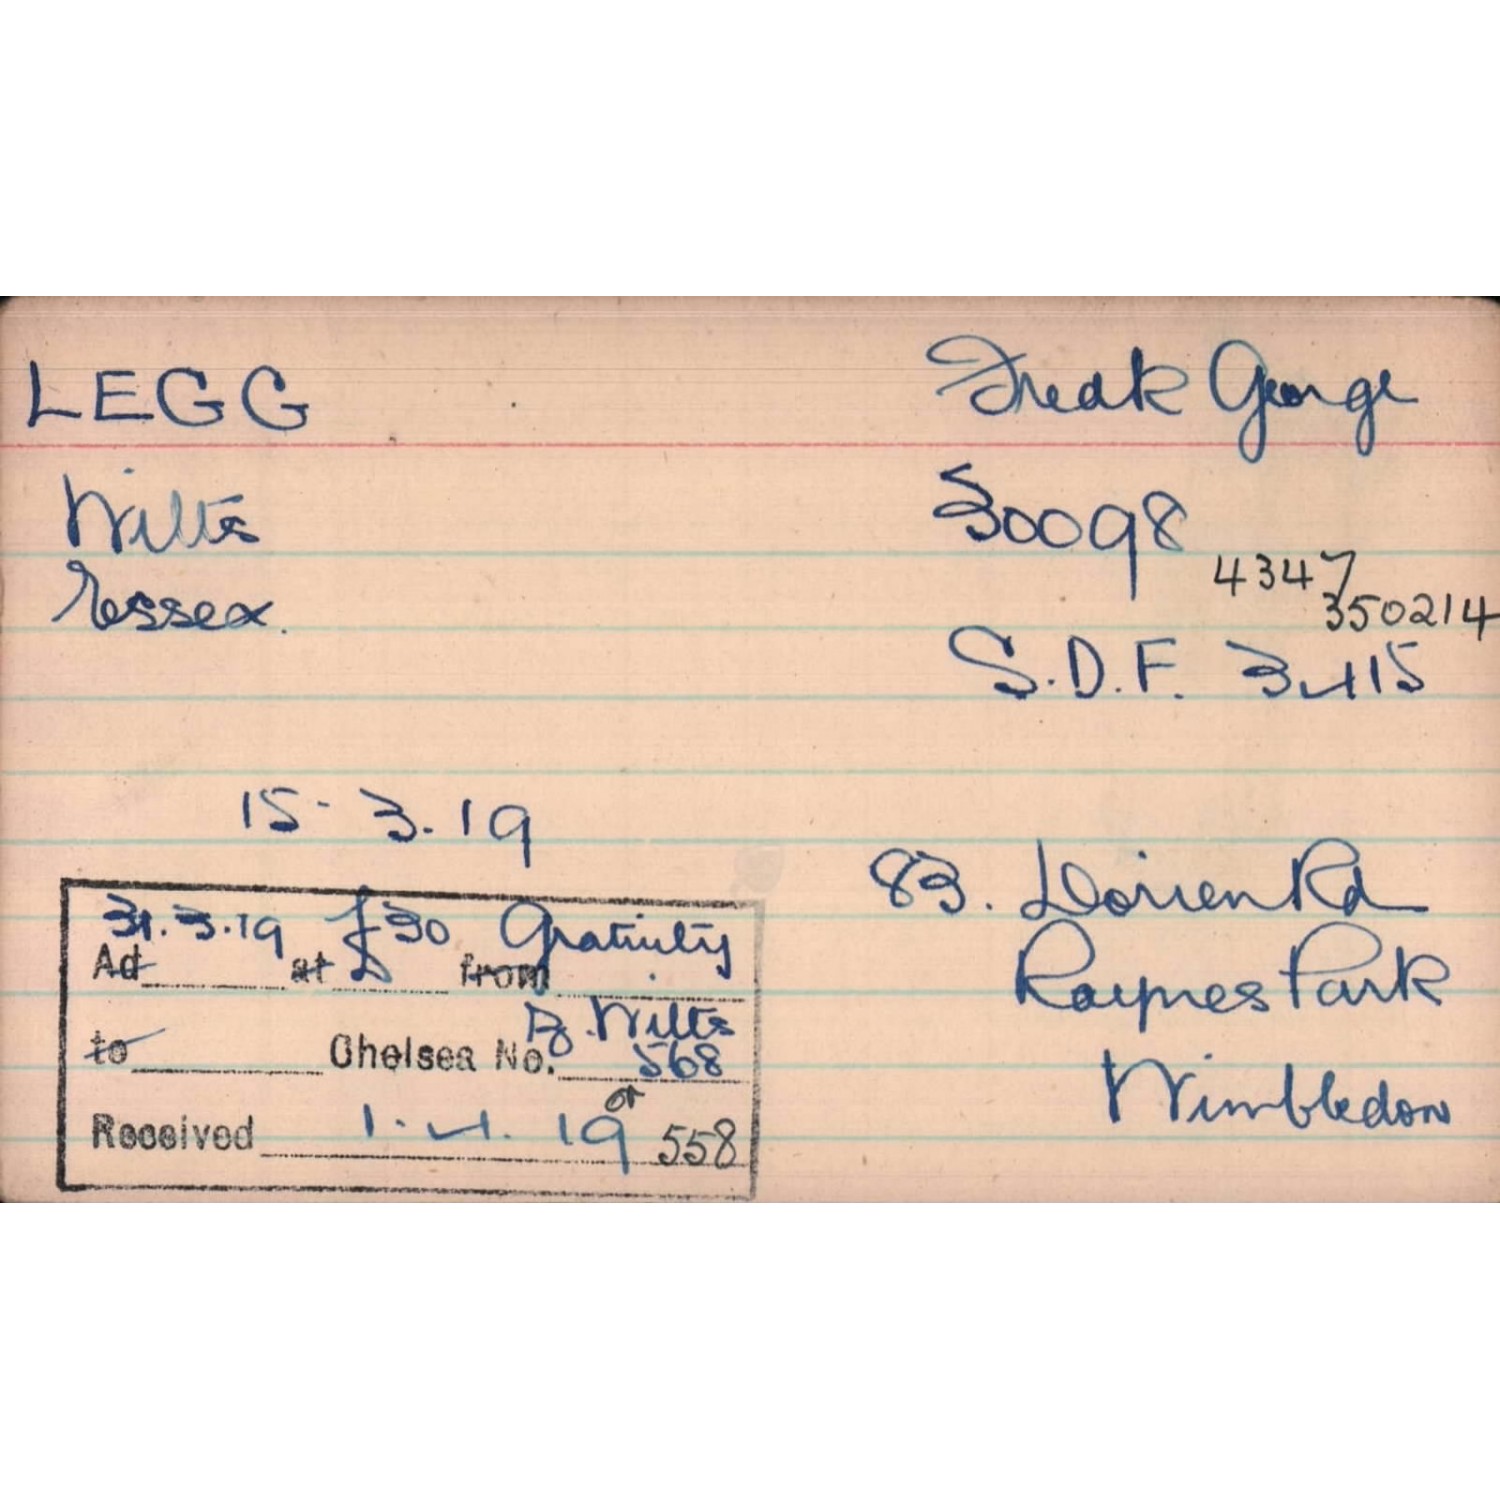 LEGG Fredk George
Wilts 30098
4347
Essex. 350214
S.D.F. 3415
15-3.19
83. Dorien Rd
31.3.19 £30 Gratuity
Ad at from
Raynes Park
B. Wilts
to Chelsea No. 568
Wimbledon
or
Received 1.4.19 558